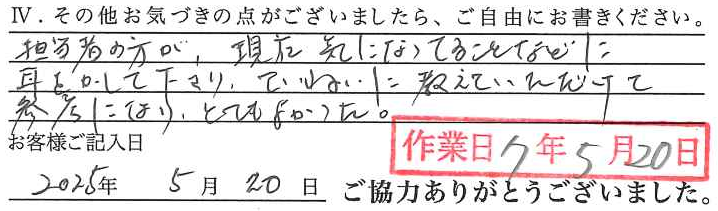 Ⅳ．その他お気づきの点がございましたら、ご自由にお書きください。
担当者の方が、現在気になってることなどに
耳をかして下さり、ていねいに教えていただけて
参考になり、とてもよかった。
お客様ご記入日
作業日7年5月20日
2025年 5月 20日 ご協力ありがとうございました。